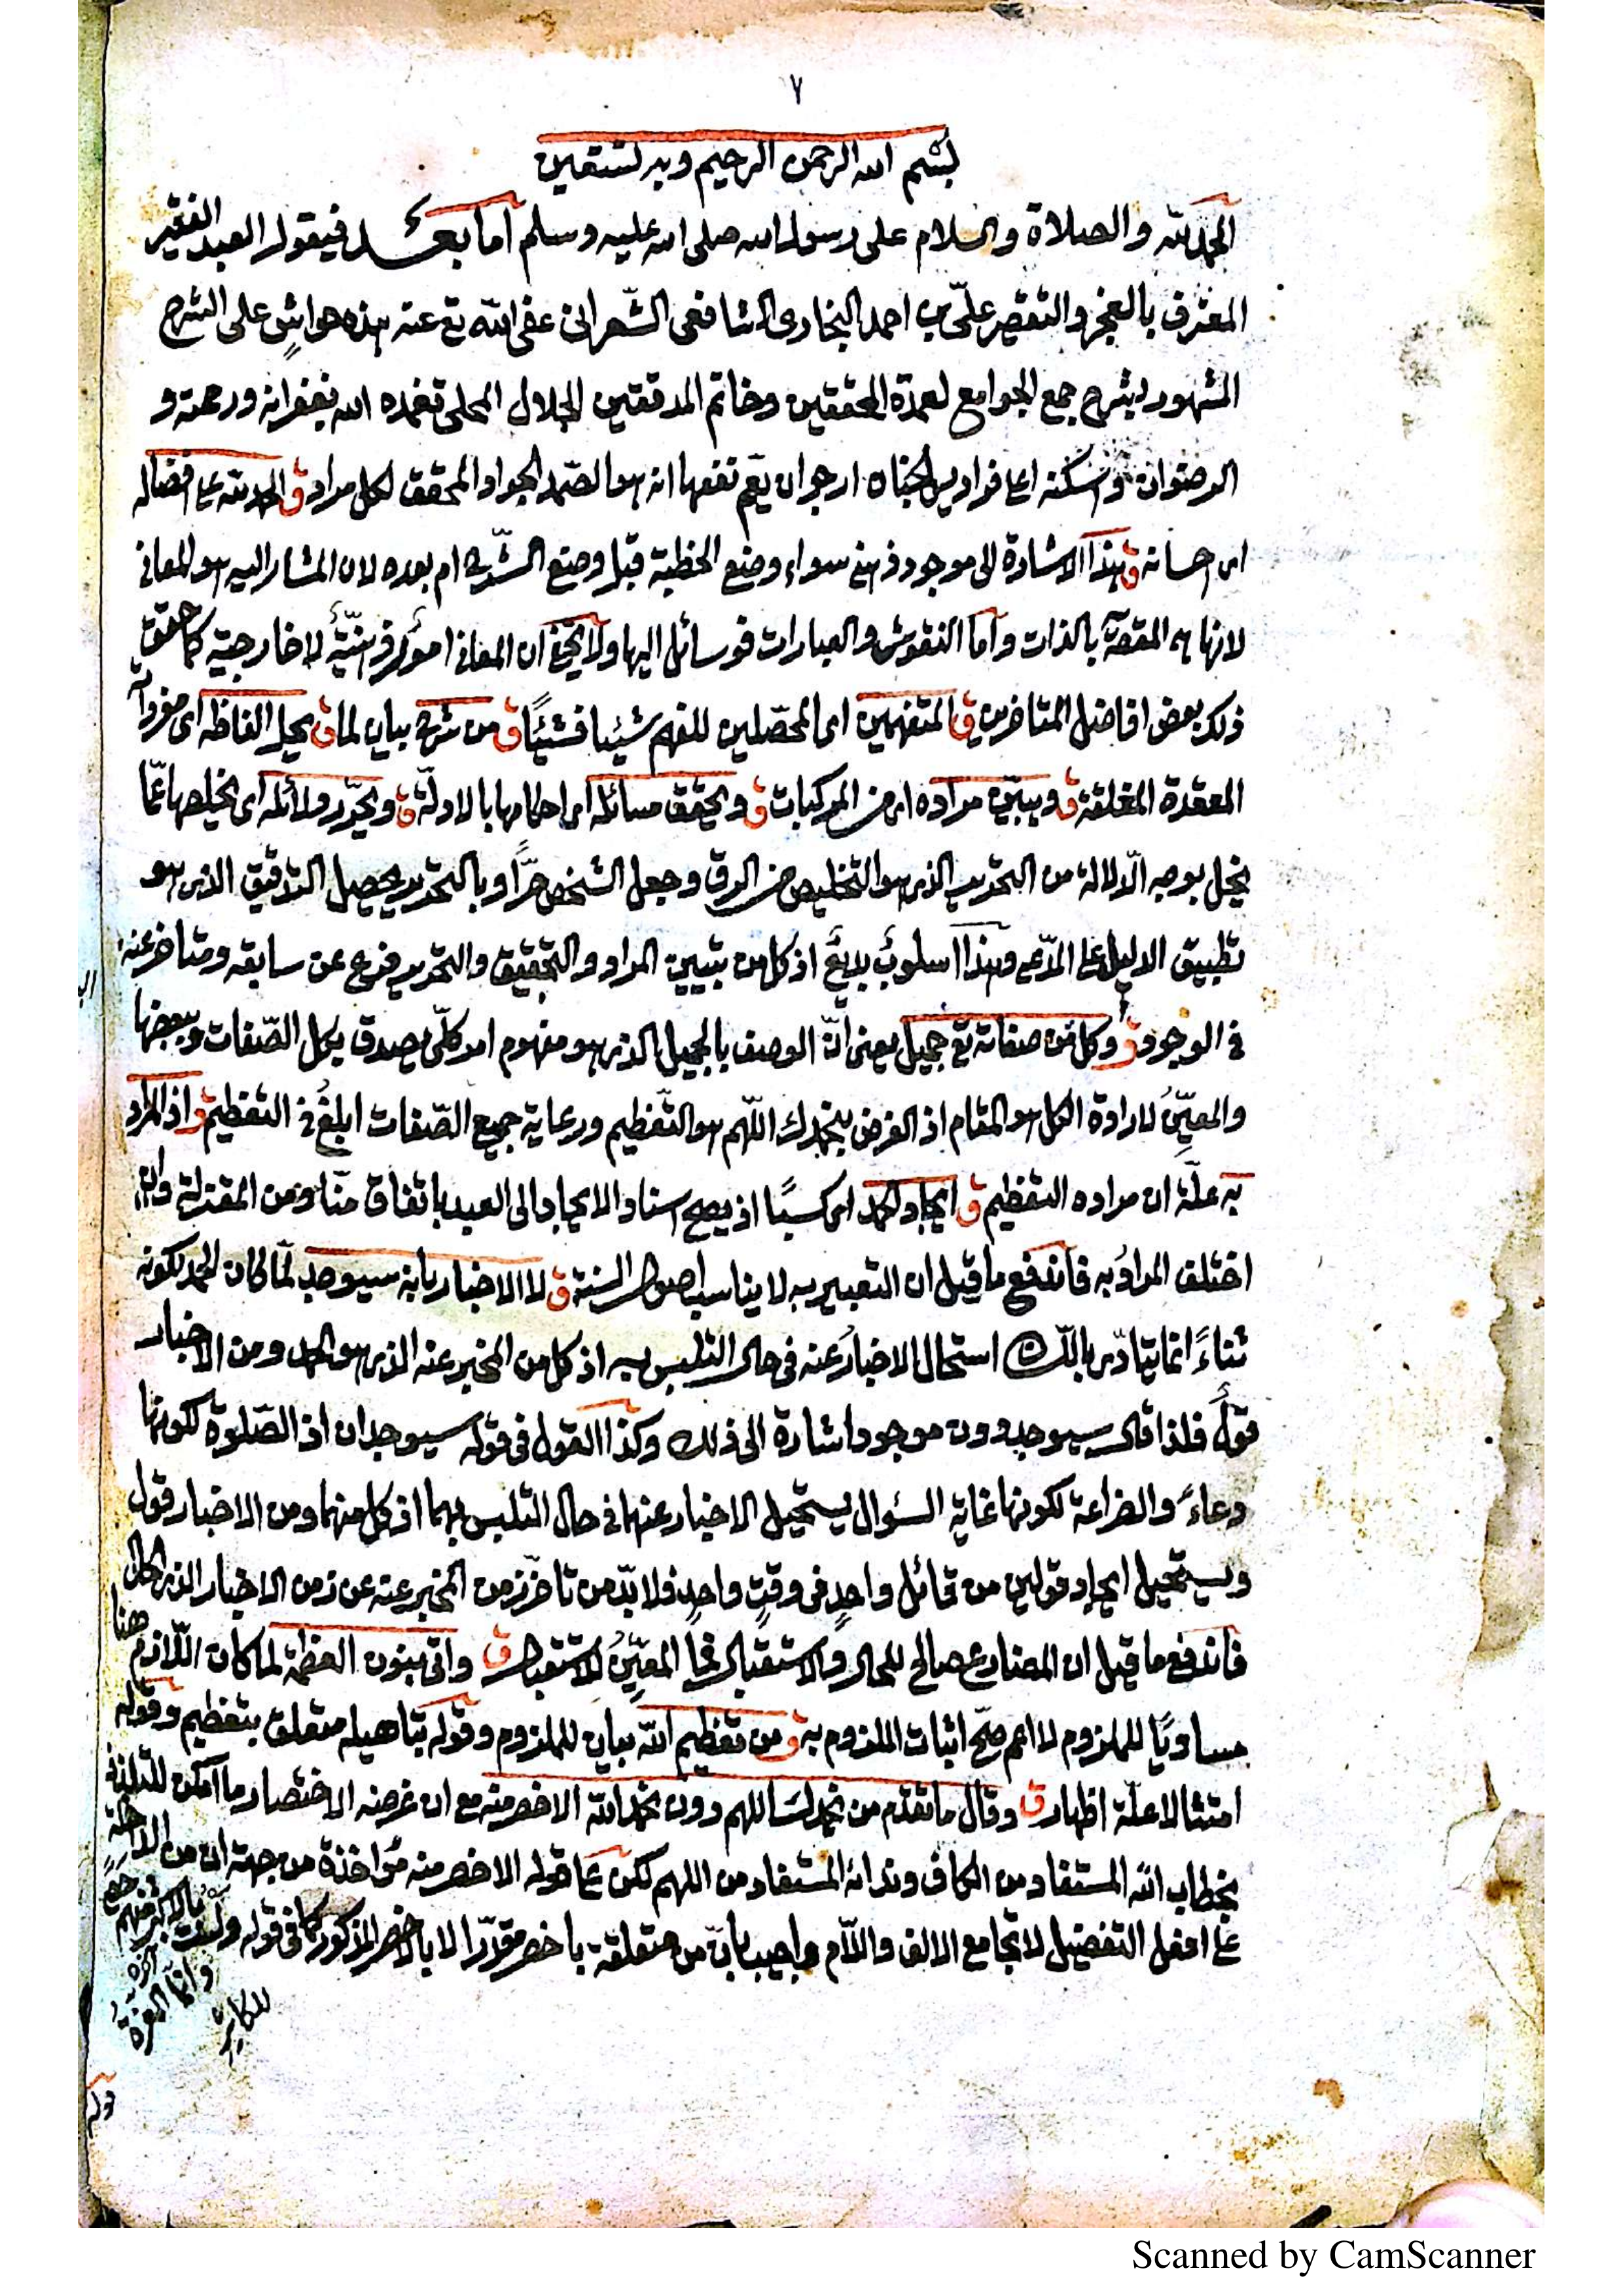 ٧
بسم الله الرحمن الرحيم وبه نستعين
الحمد لله والصلاة والسلام على رسول الله صلى الله عليه وسلم اما بعد فيقول العبد الفقير
المعترف بالعجز والتقصير علي بن احمد البخاري الشافعي الشعراني عفى الله تع عنه هذه حواشٍ على الشرح
المشهور بشرح جمع الجوامع لعمدة المحققين وخاتم المدققين الجلال المحلي تغمده الله بغفرانه ورحمته و
الرضوان واسكنه اعلى فراديس الجنان ارجو ان يعم نفعها انه هو الصمد الجواد المحقق لكل مراد ق الحمد لله على افضاله
اى احسانه ق هذا الاشارة الى موجود ذهني سواء وضع الخطبة قبل وضع الشرح ام بعده لان المشار اليه هو المعاني
لانها هي المقصة بالذات واما النقوش والعبارات فوسائل اليها ولا يخفى ان المعاني امورٌ ذهنيّةٌ لا خارجية كما حقق
ذلك بعض افاضل المتاخرين ق المتفهمين اى المحصّلين للفهم شيئا فشيئًا ق من شرح بيان لما ق يحل الفاظه اى مفرداته
المعقدة المغلقة ق ويبيّن مراده اى من المركبات ق ويحقق مسائله اى احكامها بالادلّة ق ويحرّر دلائله اى يخلصها عمّا
يخل بوجه الدّلالة من التحرير الذى هو التخليص من الرق وجعل الشخص حرًّا وبالتحرير يحصل التدقيق الذى هو
تطبيق الدليل على المدّعى وهذا اسلوبٌ بديعٌ اذ كل من تبيين المراد والتحقيق والتحرير فرع عن سابقه ومتاخر عنه
في الوجود ق وكل من صفاته تع جميل يعنى انّ الوصف بالجميل الذى هو مفهوم امر كلّى يصدق بكل الصّفات وببعضها
والمعيّنُ لارادة الكل هو المقام اذ الغرض بنحمدك اللّهم هو التعظيم ورعاية جميع الصّفات ابلغُ في التعظيم ق اذ المراد
به علّة ان مراده التعظيم ق ايجاد الحمد اى كسبًا اذ يصح اسناد الايجاد الى العبد باتفاق منّا ومن المعتزلة وان
اختلف المرادُ به فاندفع ما قيل ان التعبير به لا يناسب اصول السنة ق لا الاخبار بانه سيوجد لمّا كان الحمد لكونه
ثناءً انما يتادّى باللّسان استحال الاخبارُ عنه في حال التلبس به اذ كل من المخبر عنه الذى هو الحمد ومن الاخبار
قولٌ فلذا قال سيوجد دون موجود اشارة الى ذلك وكذا القول في قوله سيوجدان اذ الصّلوة لكونها
دعاءً والضراعة لكونها غاية السؤال يستحيل الاخبار عنهما في حال التلبس بهما اذ كل منهما ومن الاخبار قول
ويستحيل ايجاد قولين من قائل واحدٍ في وقتٍ واحدٍ فلا بدّ من تاخّر زمن المخبر عنه عن زمن الاخبار الذى
فاندفع ما قيل ان المضارع صالح للحال والاستقبال فما المعيّنُ للاستقبال ق واتى بنون العظمة لما كان اللّازم هنا
مساويًا للملزوم لا اعم صحّ اثبات الملزوم به ق من تعظيم الله بيان للملزوم وقوله بتاهيله متعلق بتعظيم وقوله
امتثالا علّة اظهار ق وقال ما تقدّم من نحمدك اللهم دون نحمد الله الاخصر منه مع ان غرضه الاختصار ما امكن للتلذذ
بخطاب الله المستفاد من الكاف وندائه المستفاد من اللهم لكن على قوله الاخصر منه مؤاخذة من جهة ان من الداخلة
على افعل التفضيل لا تجامع الالف واللّام واجيب بانّ من متعلقة باخصر مقدّرا لا بالاخصر المذكور كما في قوله ولست
بالاكثر منهم
وانما العزة
للكاثر